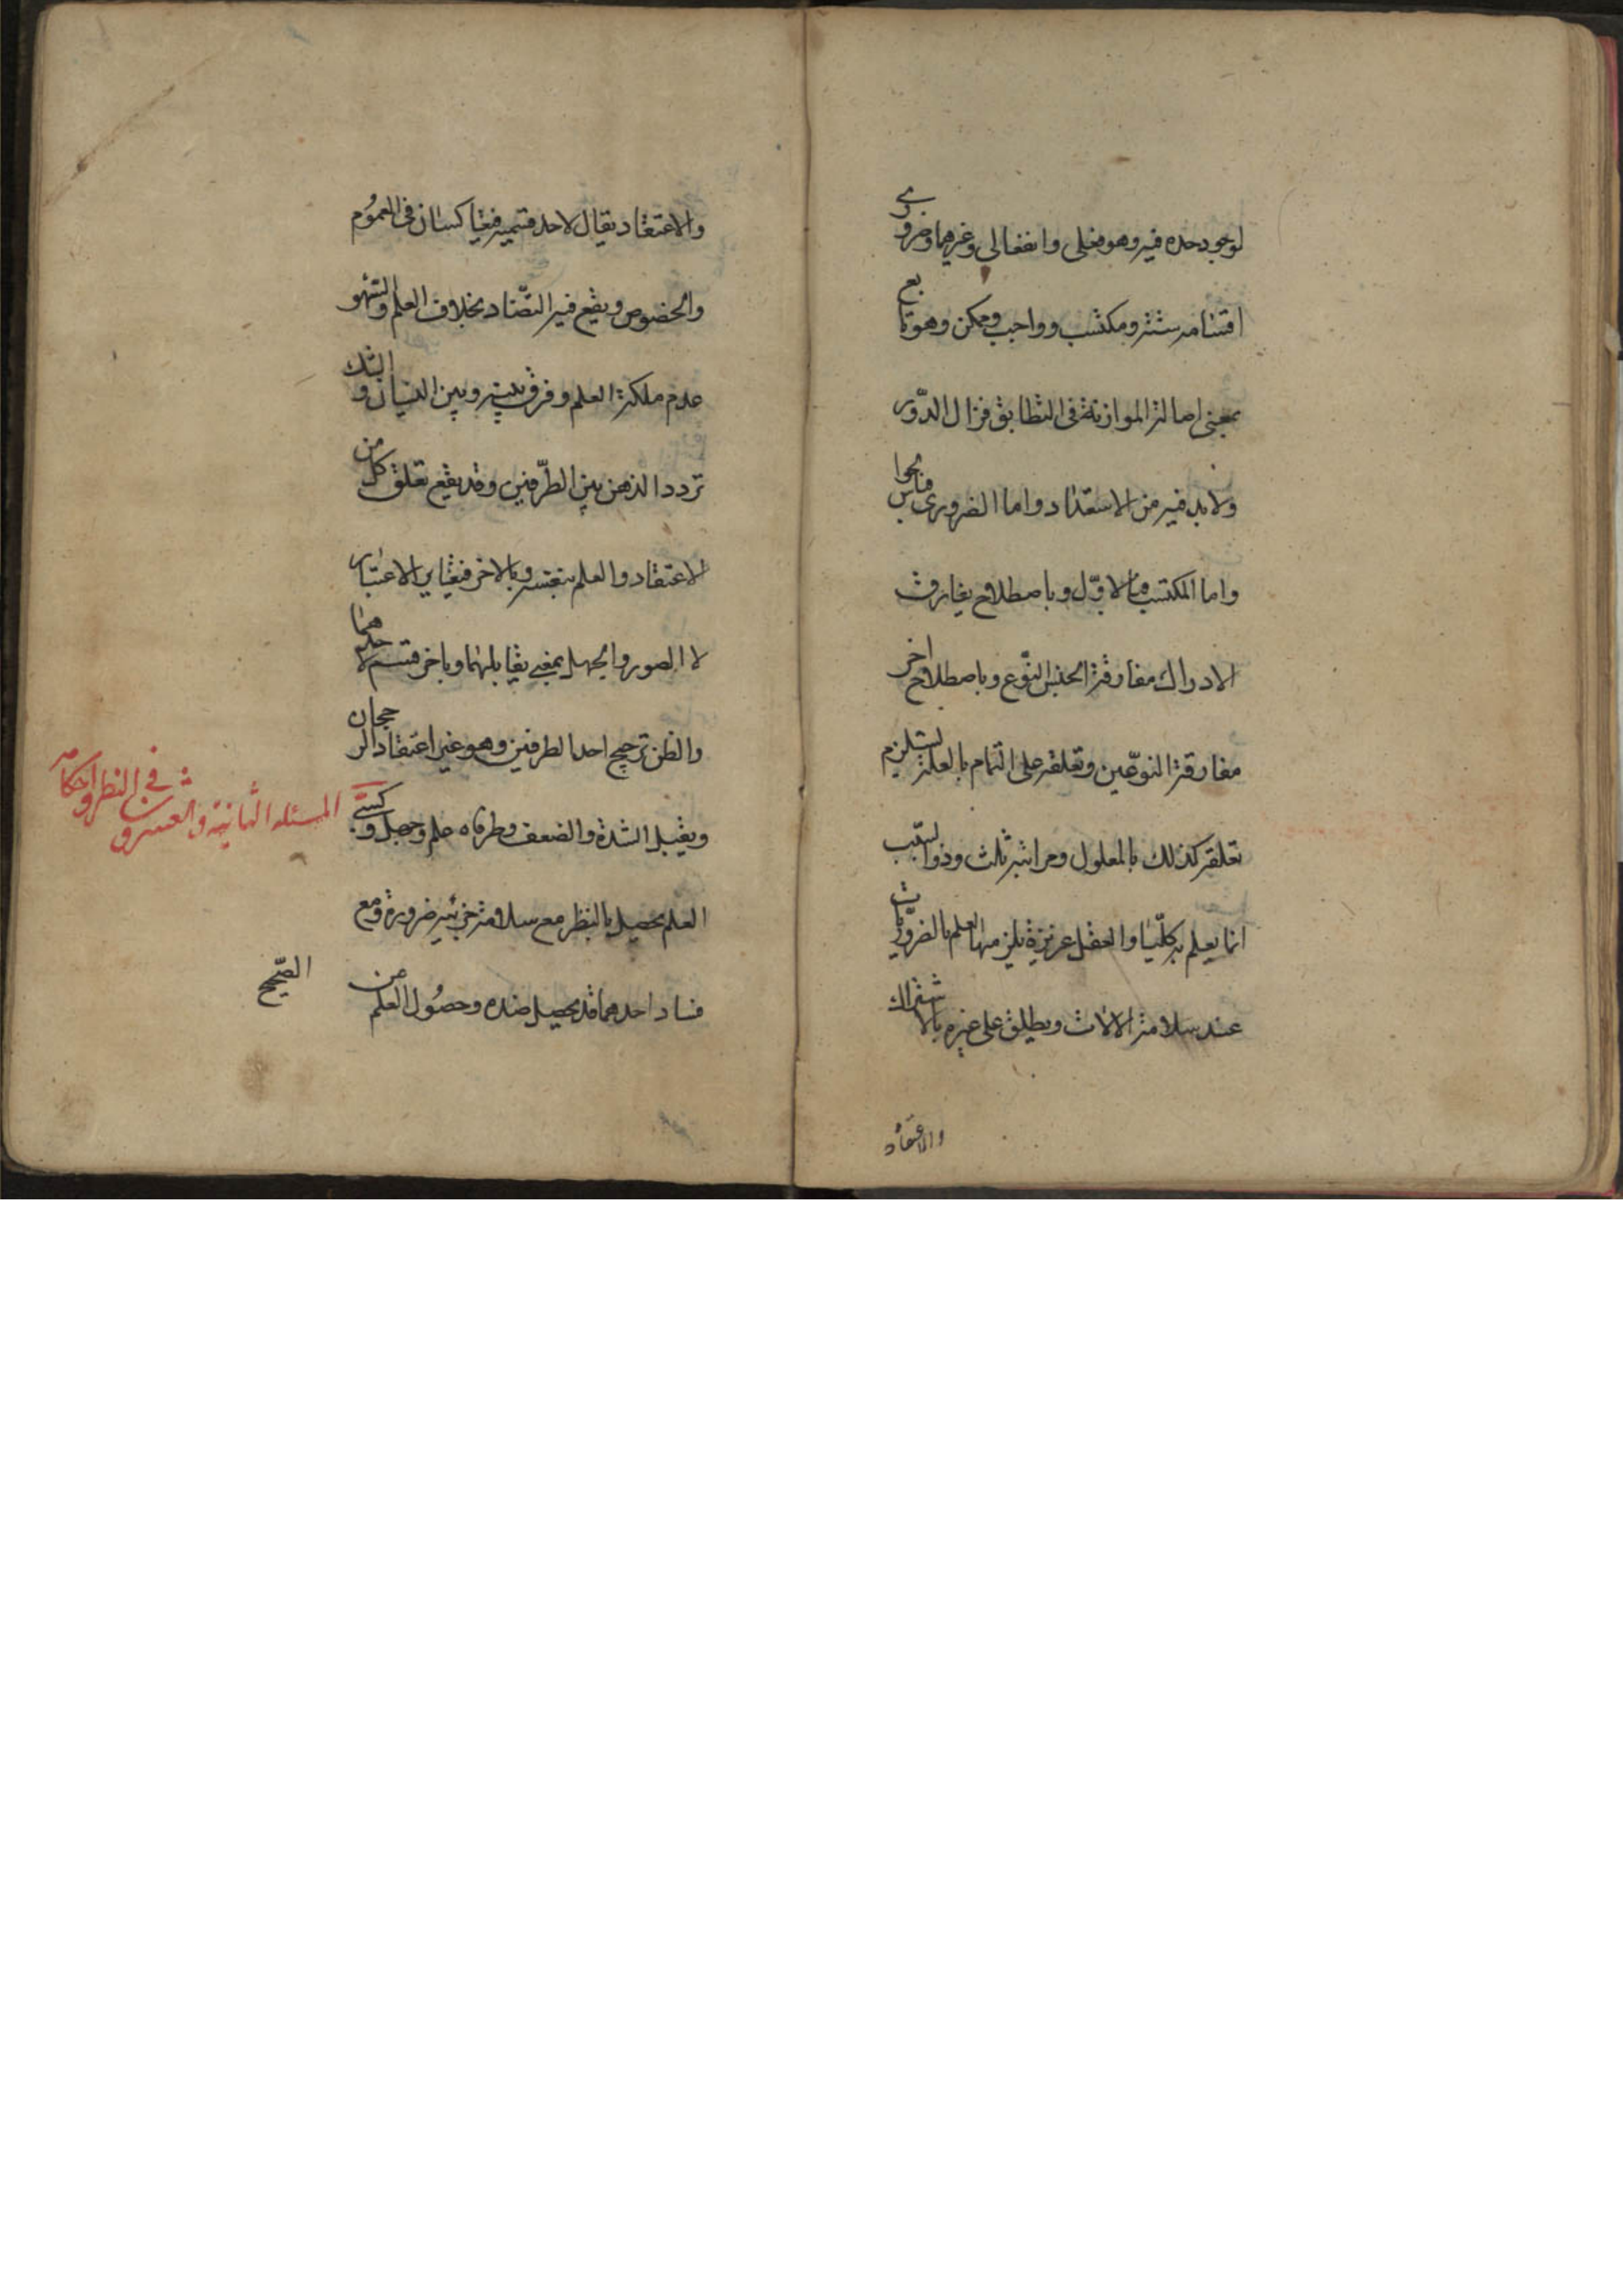 لوجود حده فيه وهو فعلى وانفعالى وغيرهما وضرورى
اقسامه ستة ومكتسب وواجب وممكن وهو تابع
بمعنى اصالة الموازنة فى التطابق فزال الدّور
ولا بد فيه من الاستعداد واما الضرورى فبالحواس
واما المكتسب فبالاوّل وباصطلاح يفارق
الادراك مفارقة الجنس النّوع وباصطلاح اخر
مفارقة النوعين وتعلقه على التمام بالعلة يستلزم
تعلقه كذلك بالمعلول ومراتبه ثلث وذو السّبب
انما يعلم به كليّا والعقل غريزة يلزمها العلم بالضروريّات
عند سلامة الالات ويطلق على غيره بالاشتراك
والاعتقاد
والاعتقاد يقال لاحد قسميه فيتعاكسان فى العمُوم
والخصوص ويقع فيه التضّاد بخلاف العلم والسّهو
عدم ملكة العلم وفرق بينه وبين النسيان والشك
تردد الذهن بين الطّرفين وقد يقع تعلق كل من
الاعتقاد والعلم بنفسه وبالاخر فيتغاير الاعتبار
لا الصور والجهل بمعنى يقابلهما وباخر قسم لاحدهما
والظن ترجيح احد الطرفين وهو غير اعتقاد الرجحان
ويقبل الشدة والضعف وطرفاه علم وجهل وكسبىّ
المسئله الثانية والعشرون فى النظر واحكامه
العلم يحصل بالنظر مع سلامة جزئيه ضرورة ومع
فساد احدهما قد يحصل ضده وحصُول العلم من
الصّحيح